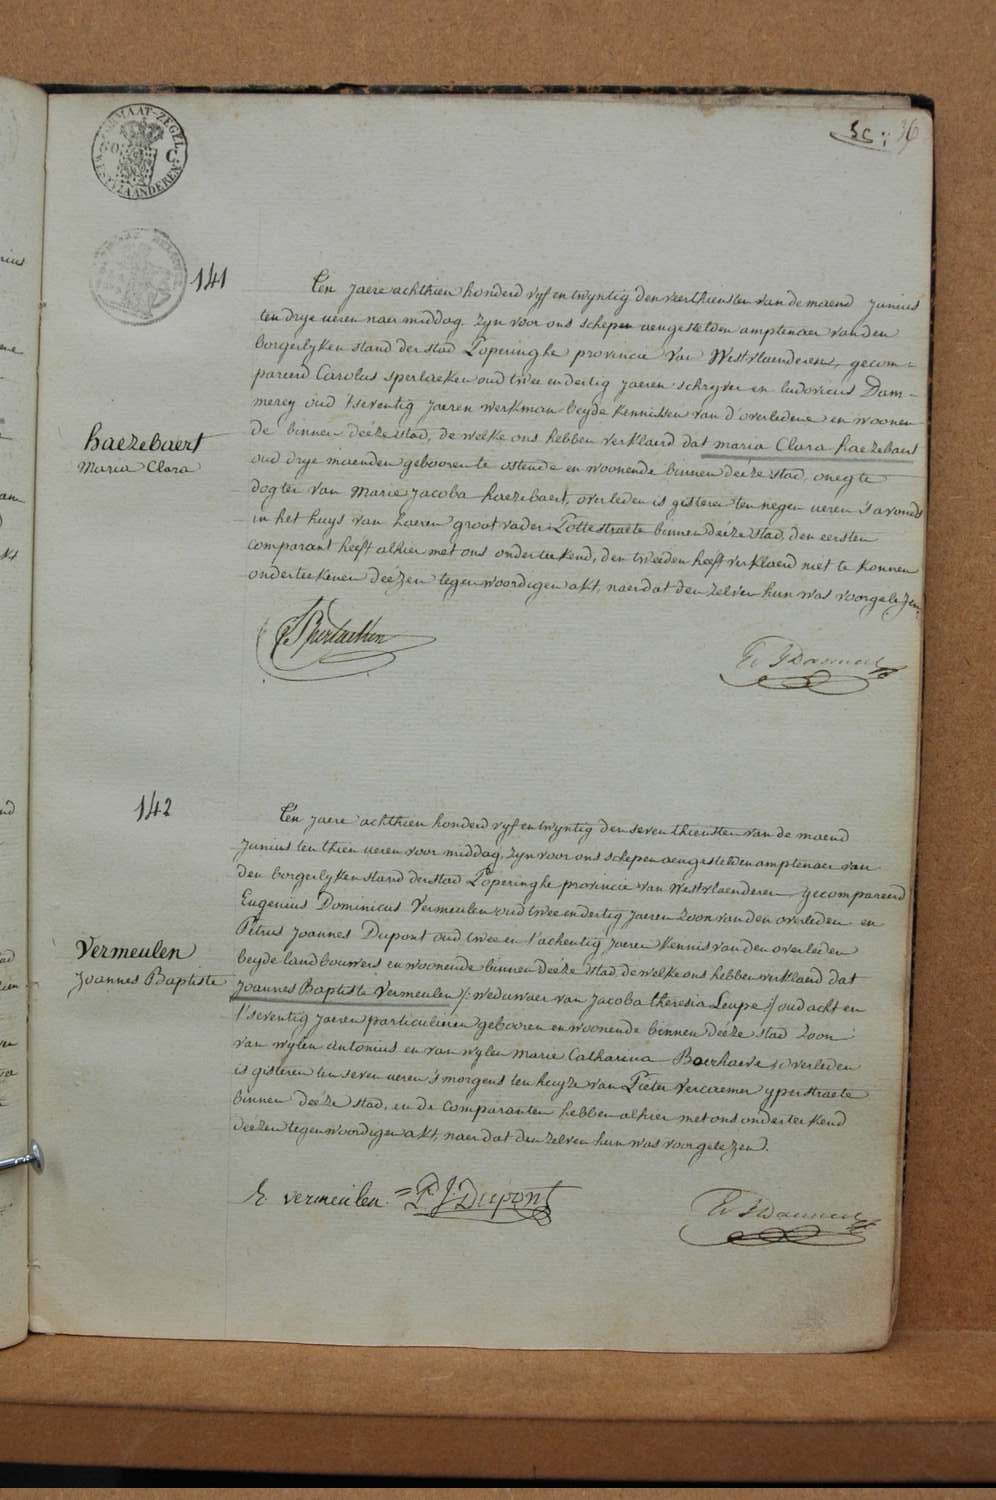 36
141
Ten jaere achthien honderd vyf en twyntig den veerthiensten van de maend Junius
ten drye ueren naer middag, Zyn voor ons schepen aengestelden amptenaer van den
borgerlyken stand der stad Poperinghe provincie van Westvlaenderen, gecom-
pareerd Carolus sperlaeken oud twee en dertig jaeren schryver en ludovicus Dam-
merey oud t'seventig jaeren werkman beyde kennissen van d'overledene en woonen-
de binnen deéze stad, de welke ons hebben verklaerd dat maria Clara haezebaert
oud drye maenden gebooren te ostende en woonende binnen deéze stad, onegte
dogter van Marie Jacoba haezebaert, overleden is gisteren ten negen ueren s'avonds
in het huys van haeren groot vader Pottestraete binnen deéze stad, den eersten
comparant heeft alhier met ons onderteekend, den tweeden heeft verklaerd niet te konnen
onderteekenen deézen tegenwoordigen akt, naer dat den zelven hun was voorgelezen.
haezebaert
Maria Clara
142
Ten jaere achthien honderd vyf en twyntig den seventhiensten van de maend
Junius ten thien ueren voor middag, zyn voor ons schepen aengestelden amptenaer van
den borgerlyken stand der stad Poperinghe provincie van Westvlaenderen gecompareerd
Eugenius Dominicus Vermeulen oud twee en dertig jaeren Zoon van den overleden en
Petrus Joannes Dupont oud twee en t'achentig jaeren kennis van den overleden
beyde landbouwers en woonende binnen deéze stad, de welke ons hebben verklaerd dat
Joannes Baptiste Vermeulen /: weduwaer van Jacoba theresia Leupe :/ oud acht en
t'seventig jaeren particulieren gebooren en woonende binnen deéze stad Zoon
van wylen antonius en van wylen Marie Catharina Boerhaeve is overleden
is gisteren ten seven ueren s'morgens ten huyze van Pieter Vercaemer yperstraete
binnen deéze stad, en de comparanten hebben alhier met ons onderteekend
deézen tegenwoordigen akt, naer dat den zelven hun was voorgelezen.
Vermeulen
Joannes Baptiste
E. vermeulen P J Dupont